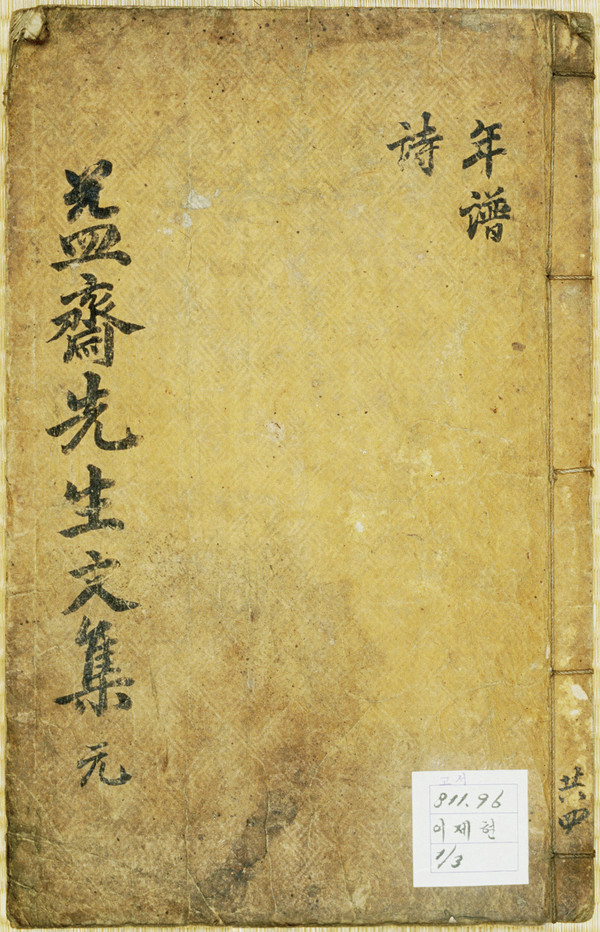 年譜
詩
益齋先生文集 元
共四
고서
811.96
이제현
1/3